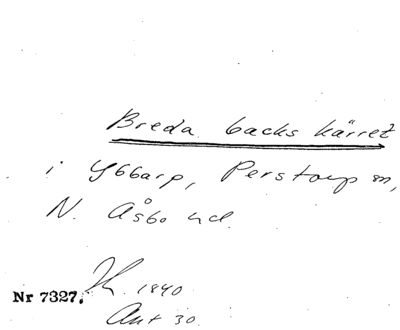 Breda backs kärret
i Ybbarp, Perstorp sn,
N. Åsbo hd.
1840
Nr 7327.
Ant 30